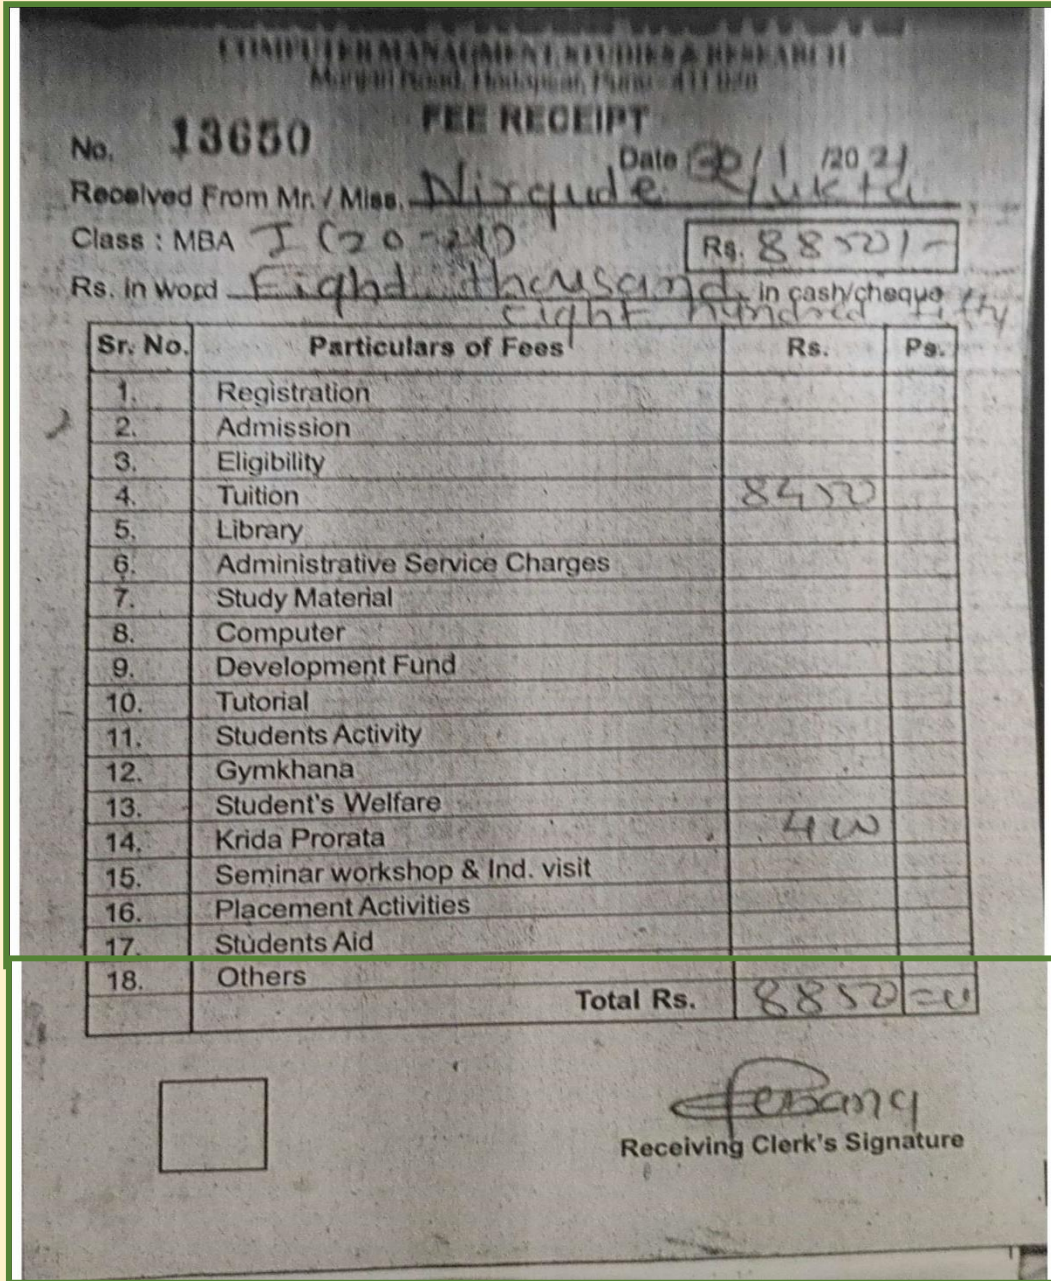 COMPUTER MANAGMENT STUDIES & RESEARCH
Manjari Road, Hadapsar, Pune - 411 028
FEE RECEIPT
No. 13650
Date : 30/1/2021
Received From Mr. / Miss. Nirgude Yukta
Class : MBA I (20-21) Rs. 8850/-
Rs. in word Eight thousand in cash/cheque
eight hundred fifty
Sr. No. Particulars of Fees Rs. Ps.
1. Registration
2. Admission
3. Eligibility
4. Tuition 8450
5. Library
6. Administrative Service Charges
7. Study Material
8. Computer
9. Development Fund
10. Tutorial
11. Students Activity
12. Gymkhana
13. Student's Welfare
14. Krida Prorata 400
15. Seminar workshop & Ind. visit
16. Placement Activities
17. Students Aid
18. Others
Total Rs. 8850=00
Receiving Clerk's Signature